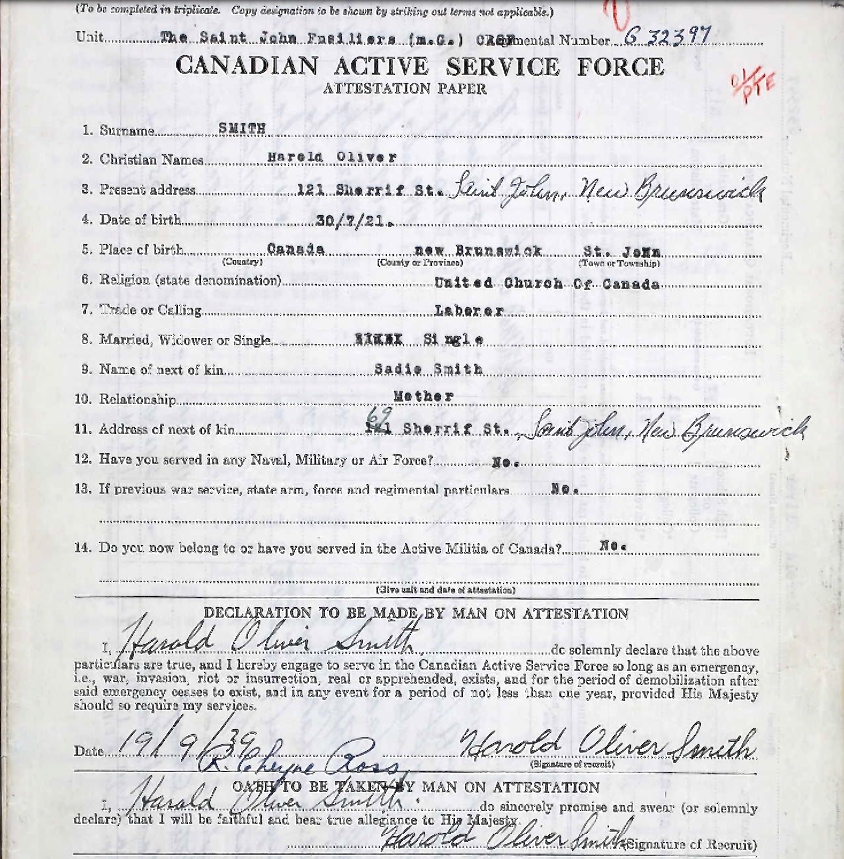 (To be completed in triplicate. Copy designation to be shown by striking out terms not applicable.)
Unit The Saint John Fusiliers (m.G.) CASF Regimental Number G 32397
CANADIAN ACTIVE SERVICE FORCE
ATTESTATION PAPER
PTE
1. Surname SMITH
2. Christian Names Harold Oliver
3. Present address 121 Sherrif St. Saint John, New Brunswick
4. Date of birth 30/7/21.
5. Place of birth Canada new Brunswick St. John
(Country) (County or Province) (Town or Township)
6. Religion (state denomination) United Church Of Canada
7. Trade or Calling Laborer
8. Married, Widower or Single Single
9. Name of next of kin Sadie Smith
10. Relationship Mother
69
11. Address of next of kin 121 Sherrif St., Saint john, New Brunswick
12. Have you served in any Naval, Military or Air Force? No.
13. If previous war service, state arm, force and regimental particulars No.
14. Do you now belong to or have you served in the Active Militia of Canada? No.
(Give unit and date of attestation)
DECLARATION TO BE MADE BY MAN ON ATTESTATION
I, Harold Oliver Smith do solemnly declare that the above
particulars are true, and I hereby engage to serve in the Canadian Active Service Force so long as an emergency,
i.e., war, invasion, riot or insurrection, real or apprehended, exists, and for the period of demobilization after
said emergency ceases to exist, and in any event for a period of not less than one year, provided His Majesty
should so require my services.
Date 19/9/39 Harold Oliver Smith
R. Cheyne Ross (Signature of recruit)
OATH TO BE TAKEN BY MAN ON ATTESTATION
I, Harold Oliver Smith. do sincerely promise and swear (or solemnly
declare) that I will be faithful and bear true allegiance to His Majesty.
Harold Oliver Smith (Signature of Recruit)